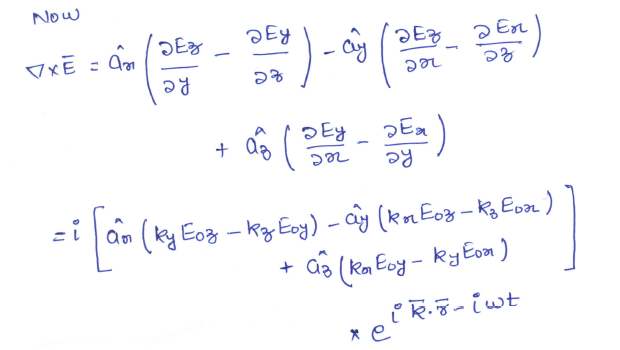 Now
∇×Ē = âₓ (∂E_z/∂y − ∂E_y/∂z) − â_y (∂E_z/∂x − ∂Eₓ/∂z)
+ â_z (∂E_y/∂x − ∂Eₓ/∂y)
= i [ âₓ (k_y E₀z − k_z E₀y) − â_y (kₓ E₀z − k_z E₀ₓ)
+ â_z (kₓ E₀y − k_y E₀ₓ) ]
× e^{i k̄·r̄ − iωt}